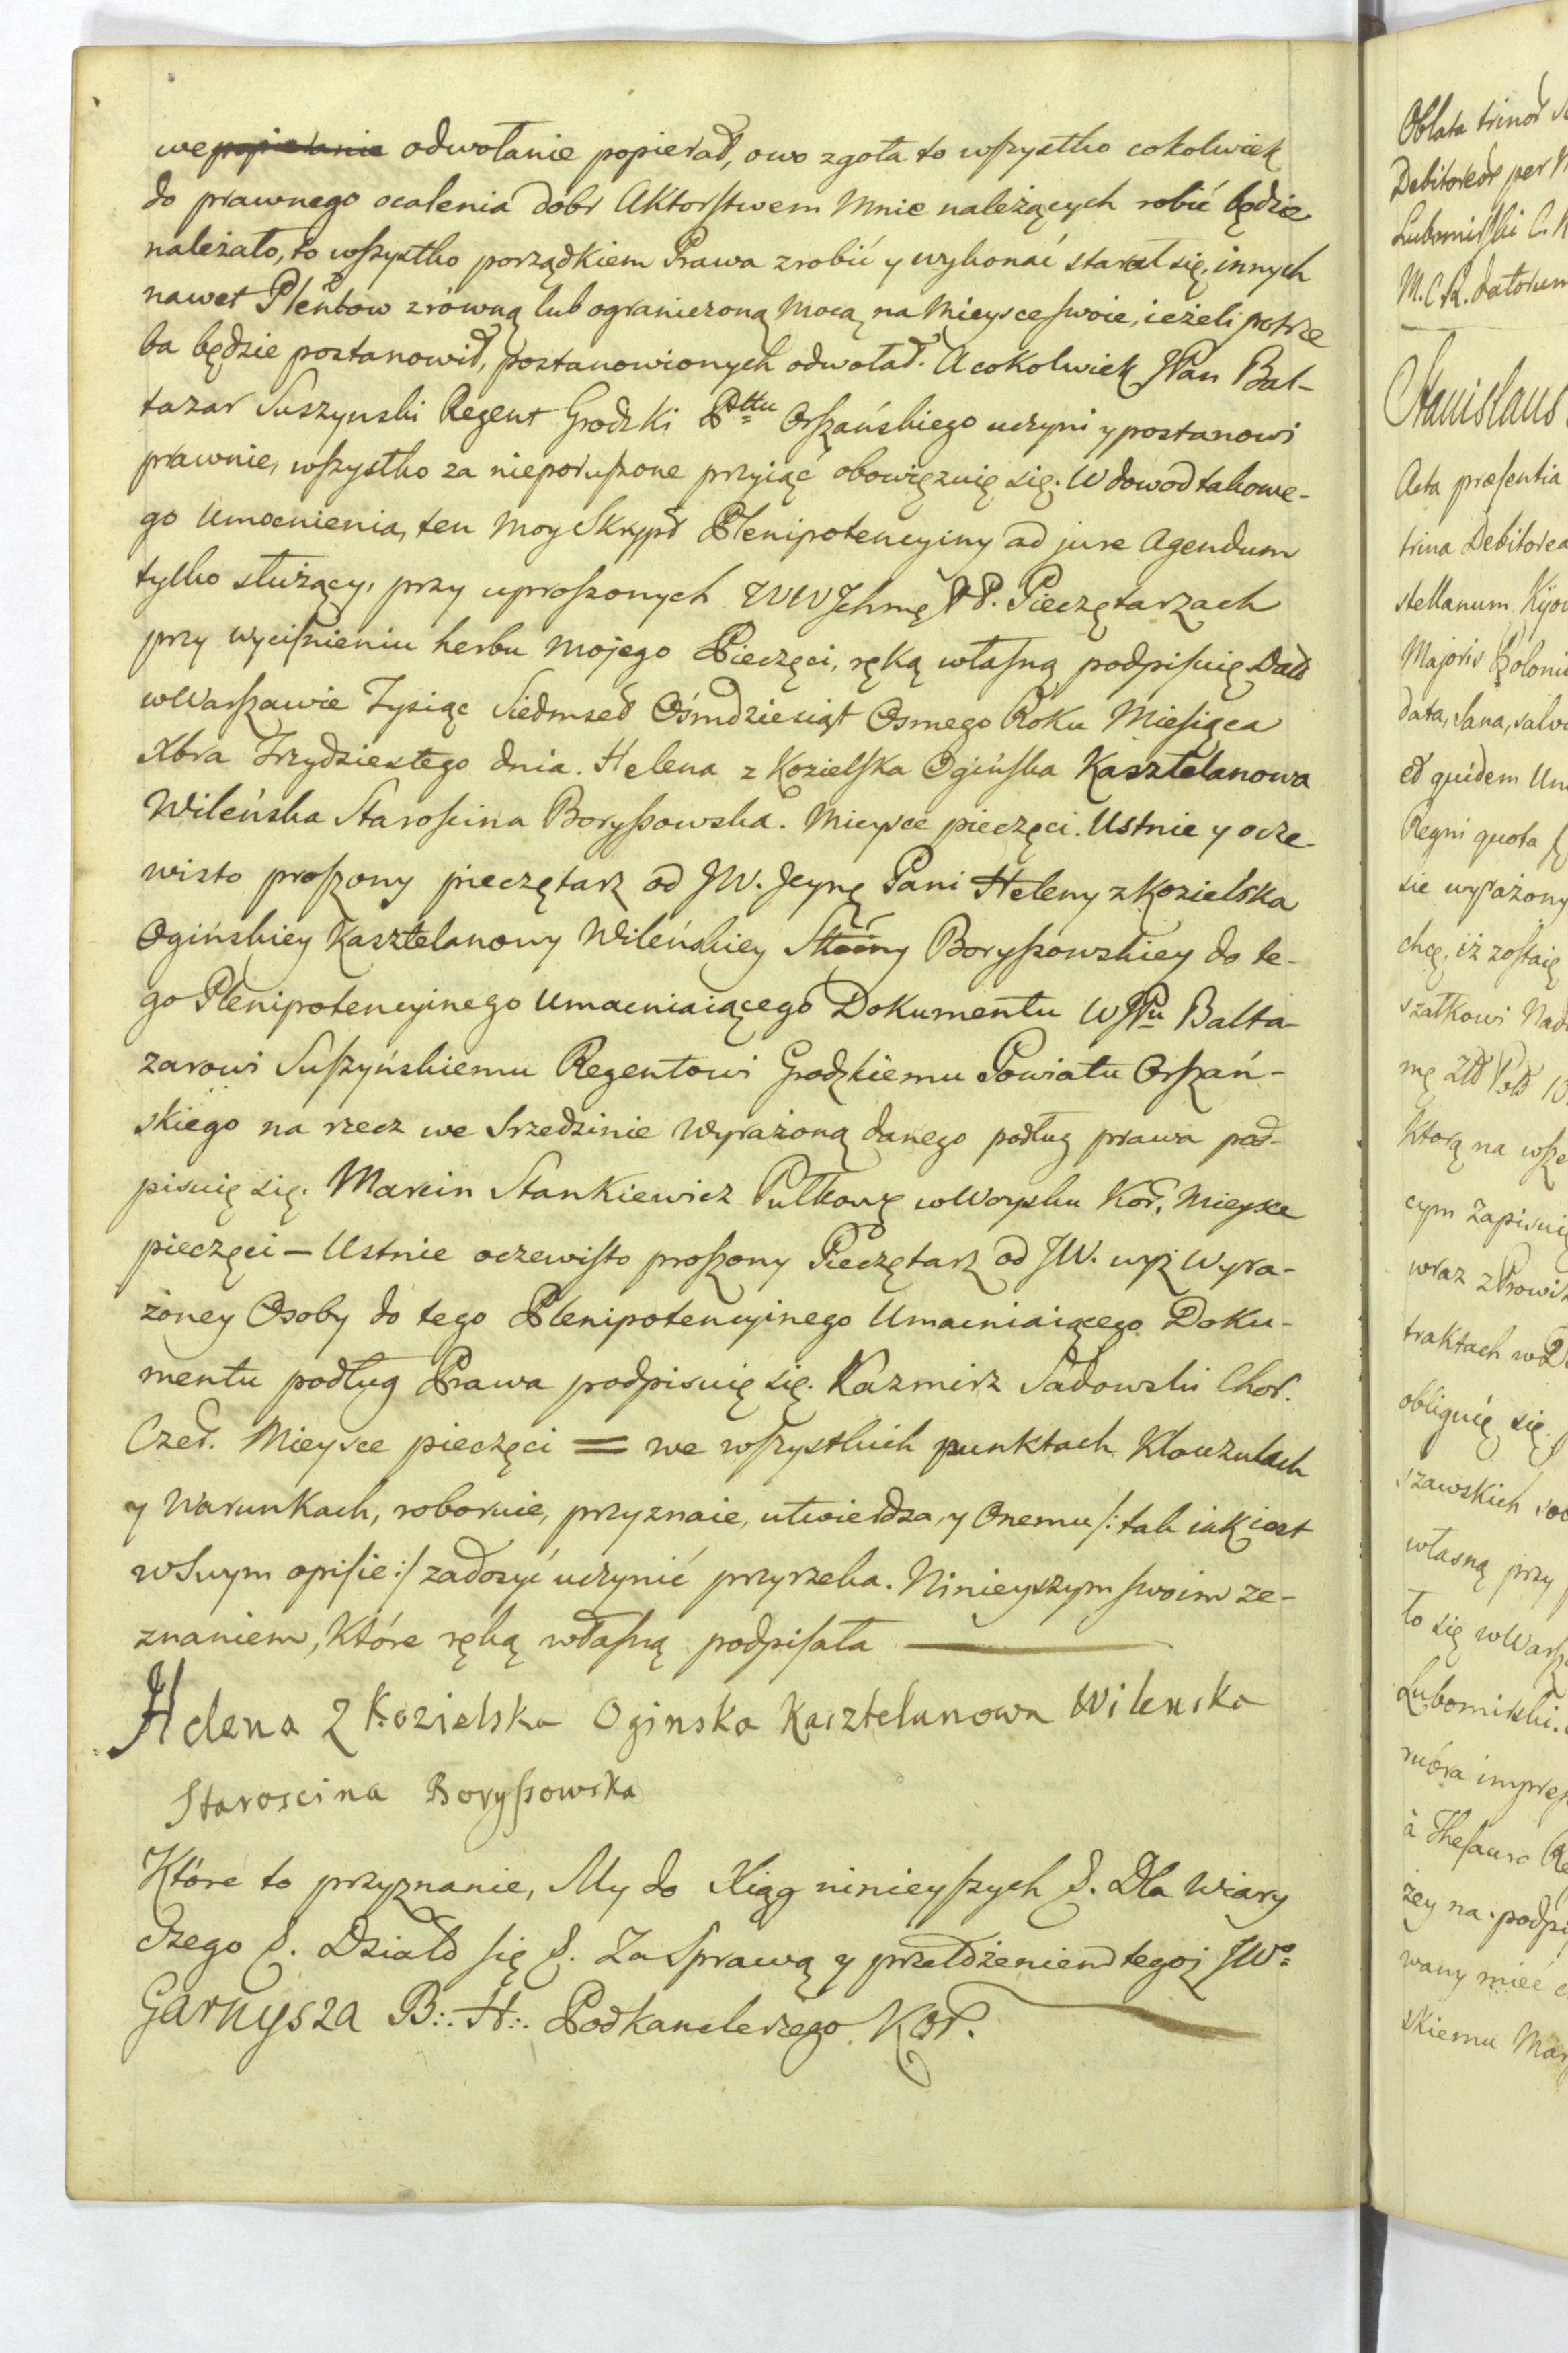 we popieranie odwołanie popierał, owo zgoła to wszystko cokolwiek
do prawnego ocalenia dobr Aktorstwem Mnie należących robić będzie
należało, to wszystko porządkiem Prawa zrobić y wykonać starał się, innych
nawet Plentow z rowną lub ograniczoną Mocą na Mieysce swoie, ieżeli potrze
ba będzie postanowił, postanowionych odwołał. A cokolwiek JPan Bal-
tazar Suszynski Regent Grodzki Pttu Orszańskiego uczyni y postanowi
prawnie, wszystko za nieporuszone przyiąć obowięzuię się. W dowod takowe-
go Umocnienia, ten Moy Skrypt Plenipotencyiny ad jure Agendum
tylko służący, przy uproszonych WW Ichmć PP. Pieczętarzach
przy wyciśnieniu herbu Mojego Pieczęci, ręką własną podpisuię Datt
w Warszawie Tysiąc Siedmset Ośmdziesiąt Osmego Roku Miesiąca
Xbra Trzydziestego dnia. Helena z Kozielska Ogińska Kasztelanowa
Wileńska Starościna Boryssowska. Mieysce pieczęci. Ustnie y ocze-
wisto proszony pieczętarz od JW. Jeymę Pani Heleny z Kozielska
Ogińskiey Kasztelanowy Wileńskiey Stściny Boryssowskiey do te-
go Plenipotencyinego Umacniaiącego Dokumentu WJPu Balta-
zarowi Suszyńskiemu Regentowi Grodzkiemu Powiatu Orszań-
skiego na rzecz we Srzedzinie Wyrażoną danego podług prawa pod-
pisuię się. Marcin Stankiewicz Pułkowę w Woysku Kor. Mieysce
pieczęci — Ustnie oczewisto proszony Pieczętarz od JW. wyż Wyra-
żoney Osoby do tego Plenipotencyinego Umacniaiącego Doku-
mentu podług Prawa podpisuię się. Kazmirz Sadowski Chor.
Czer. Mieysce pieczęci = we wszystkich punktach Klauzulach
y Warunkach, roboruie, przyznaie, utwierdza, y Onemu /: tak iak iest
w Swym opisie :/ zadosyć uczynić przyrzeka. Ninieyszym swoim ze-
znaniem, które ręką własną podpisała
Helena z Kozielska Oginska Kasztelanowa Wilenska
Staroscina Boryssowska
Które to przyznanie, My do Xiąg ninieyszych &. Dla Wiary
Czego &. Działo się &. Za Sprawą y przełożeniem tegoż JWo
Garnysza B:. H:. Podkanclerzego Kor.
Oblata
Debitoreor per
Lubomirski C.
M.C.R. datorum
Stanislaus
Acta præsentia
trina Debitorea
stellanum Kijo
Majoris Poloni
data, sana, salv
et quidem
Regni quota
sie wyrażony
chcę, iż zostaię
szałkowi Nad
mę
Którą na wsze
cym Zapisuię
wraz z Prowiz
traktach
obliguię się
szawskich
własną przy
to się w Warsz
Lubomirski.
rubra impress
à Thesauro Re
żey na podpi
wany mieć
skiemu Mar